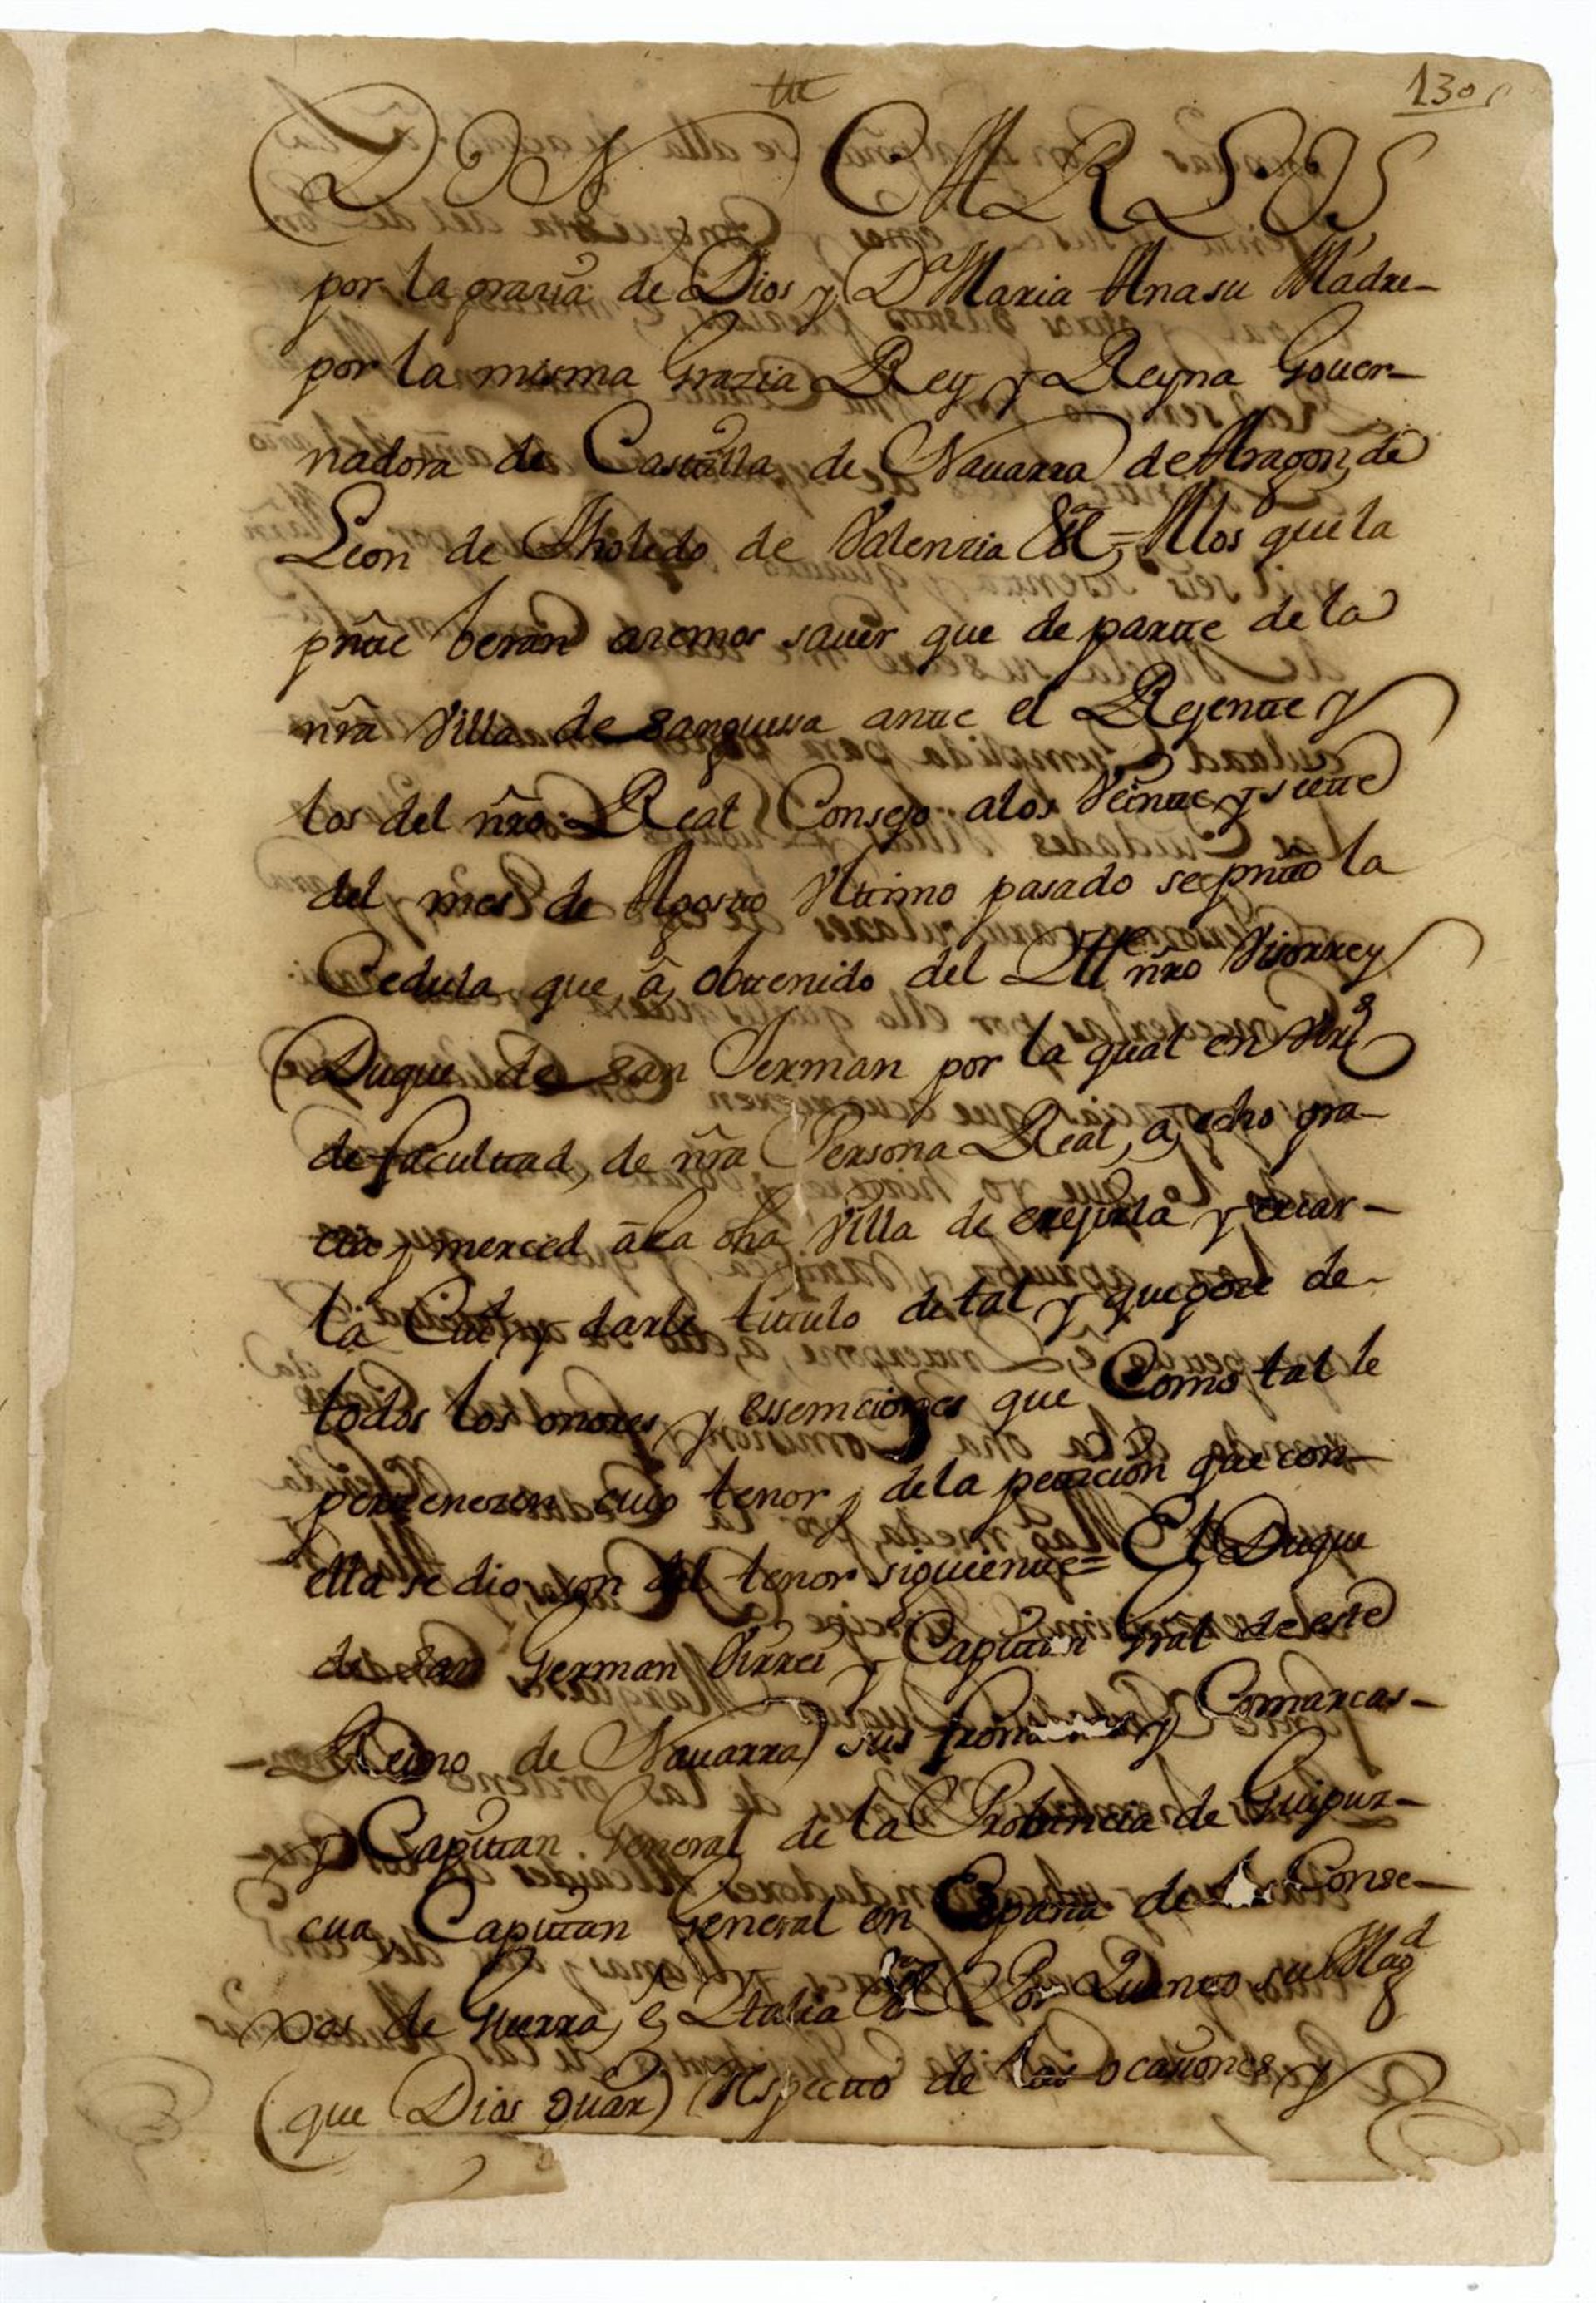 130
DON CARLOS
por la grazia de Dios y Dª Maria Ana su Madre
por la misma Grazia Rey y Reyna Gouer-
nadora de Castilla de Nauarra de Aragon, de
Leon de Tholedo de Valenzia &ª = A los que la
pñte beran azemos sauer que de parte de la
nr̃a Villa de Sanguessa ante el Rejente y
los del nr̃o Real Consejo a los Veinte y siete
del mes de Agosto Vltimo pasado se pñto la
Cedula que, a, obtenido del Ille nr̃o Visorrey
Duque de San Jerman por la qual en Vrd
de facultad, de nr̃a Persona Real, a, echo gra-
cia y merced a la dha Villa de erejirla y criar-
la Ciud y darle titulo de tal y que goze de
todos los onores y essemciones que Como tal le
pertenezen cuio tenor y de la peticion que con
ella se dio, son del tenor siguiente = El Duque
de San German Virrei y Capitan Gral de este
Reino de Nauarra) sus y Comarcas-
y Capitan General de la Probincia de Guipuz-
cua Capitan General en España de Conse-
xos de Guerra, e, Ytalia &ª Por Quanto su Magd
(que Dios guar) Respecto de las ocasiones y